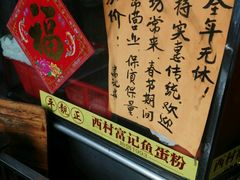 全年无休！
持实惠传统欢迎
功常来春节期间
常营业保质保量
价！
福
平靓正
西村富记鱼蛋粉